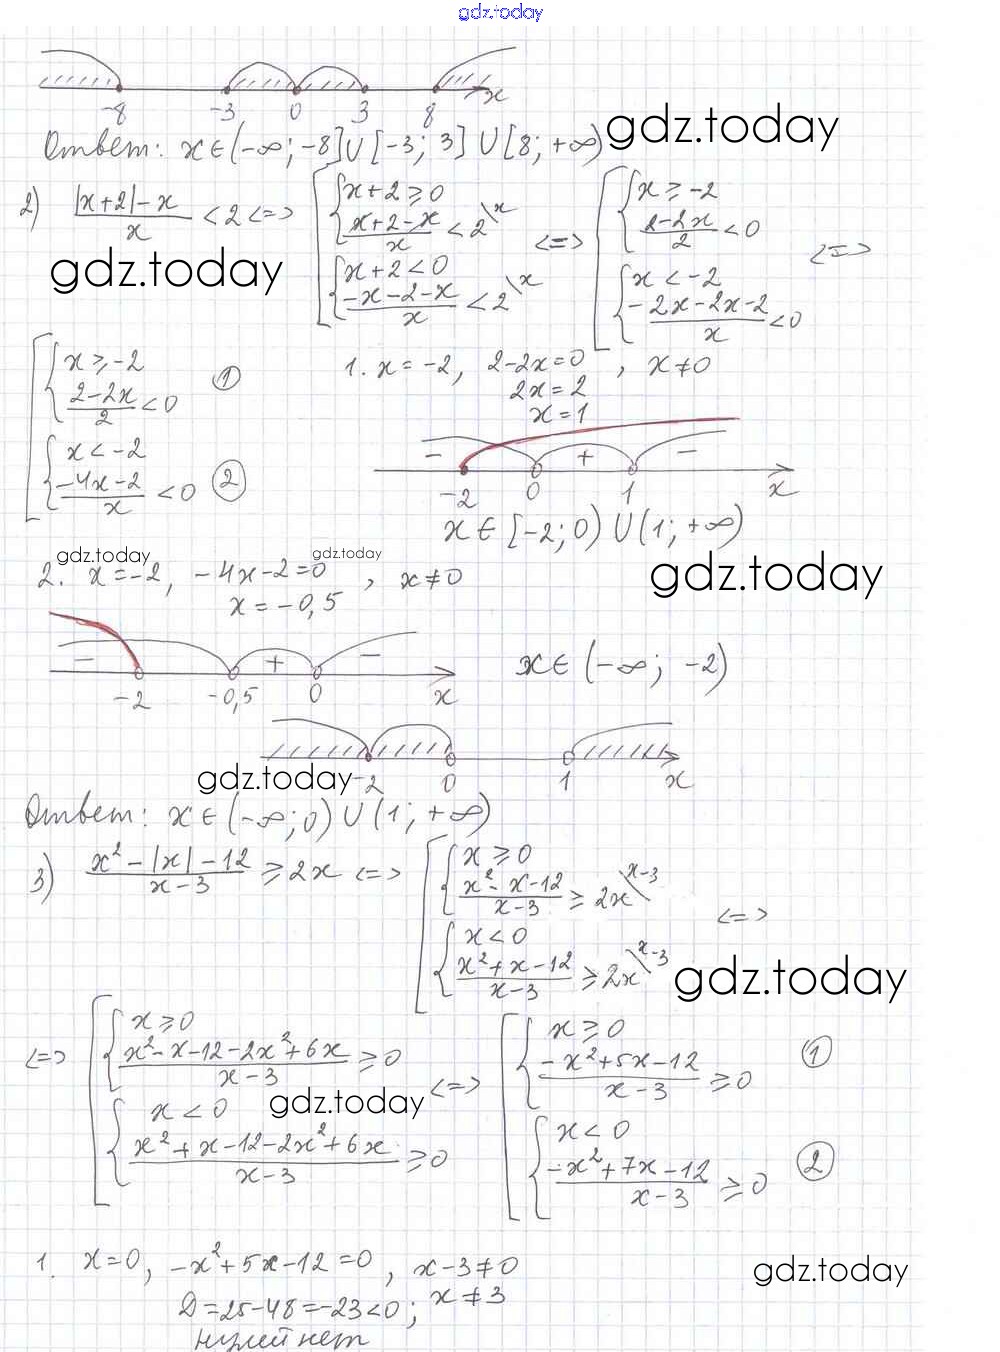 gdz.today
-8 -3 0 3 8 x
Ответ: x∈(-∞; -8]∪[-3; 3]∪[8; +∞)
gdz.today
2) |x+2|-x / x < 2 <=> [ { x+2≥0 ; x+2-x / x < 2\x ; { x+2<0 ; -x-2-x / x < 2\x <=> [ { x≥-2 ; 2-2x / 2 < 0 ; { x<-2 ; -2x-2x-2 / x < 0 <=>
gdz.today
[ { x≥-2 ; 2-2x / 2 < 0 ① ; { x<-2 ; -4x-2 / x < 0 ②
1. x=-2, 2-2x=0, x≠0
2x=2
x=1
- + -
-2 0 1 x
x∈[-2; 0)∪(1; +∞)
gdz.today
gdz.today
gdz.today
2. x=-2, -4x-2=0, x≠0
x=-0,5
- + -
-2 -0,5 0 x
x∈(-∞; -2)
gdz.today
-2 0 1 x
Ответ: x∈(-∞; 0)∪(1; +∞)
3) x²-|x|-12 / x-3 ≥ 2x <=> [ { x≥0 ; x²-x-12 / x-3 ≥ 2x\x-3 ; { x<0 ; x²+x-12 / x-3 ≥ 2x\x-3 <=>
gdz.today
<=> [ { x≥0 ; x²-x-12-2x²+6x / x-3 ≥ 0 ; { x<0 ; x²+x-12-2x²+6x / x-3 ≥ 0 <=> [ { x≥0 ; -x²+5x-12 / x-3 ≥ 0 ① ; { x<0 ; -x²+7x-12 / x-3 ≥ 0 ②
gdz.today
1. x=0, -x²+5x-12=0, x-3≠0
gdz.today
D=25-48=-23<0; x≠3
нулей нет